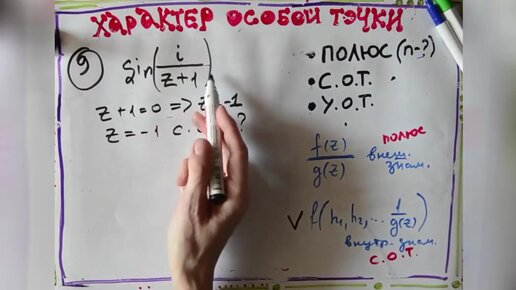 ХАРАКТЕР ОСОБОЙ ТОЧКИ
9) Sin(i/(z+1))
z+1=0 => z -1
z=-1 с. ?
• ПОЛЮС (n-?)
• С.О.Т.
• У.О.Т.
f(z)/g(z) полюс внеш. знам.
V f(h₁,h₂,... 1/g(z))
внутр. знам.
С.О.Т.